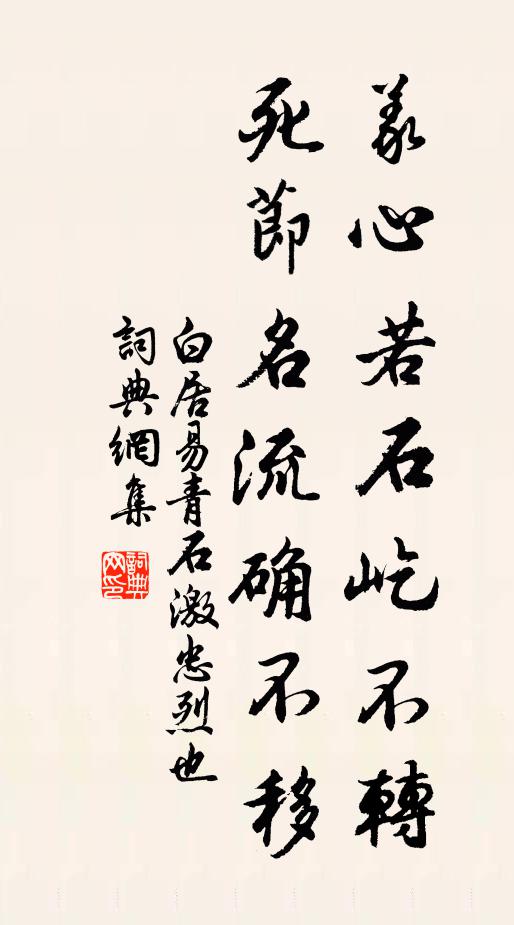 義心若石屹不轉
死節名流确不移
白居易青石激忠烈也
詞典網集
詞典
网印